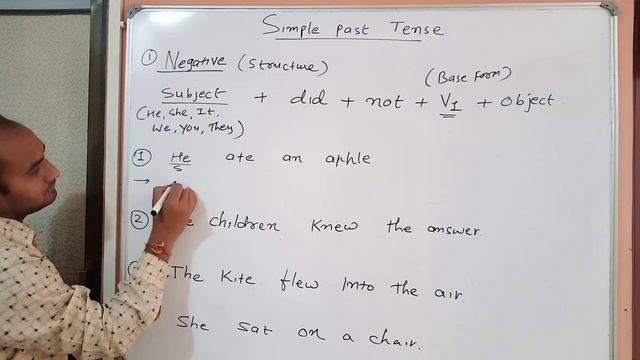 Simple Past Tense
① Negative (Structure)
(Base Form)
Subject + did + not + V1 + object
(He, She, It.
We, You, They)
① He ate an aphle
S
→
② children knew the answer
The Kite flew Into the air
She sat on a chair.